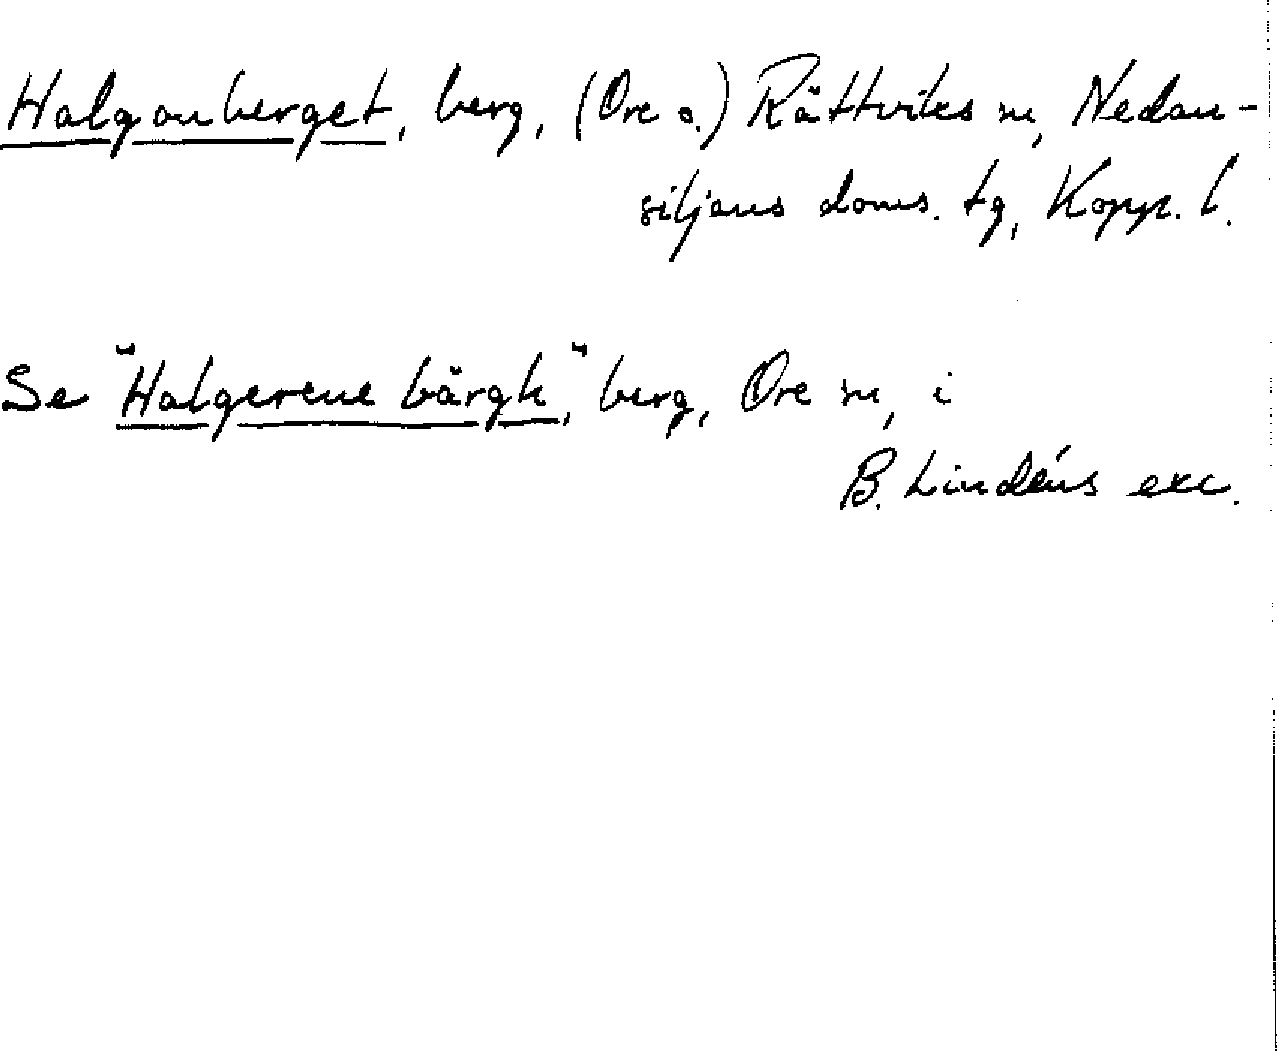 Halgonberget, berg, (Ore o.) Rättviks sn, Nedan-
siljans doms. tg, Kopp. l.
Se "Halgerene bärgh", berg, Ore sn, i
B. Lindéns exc.